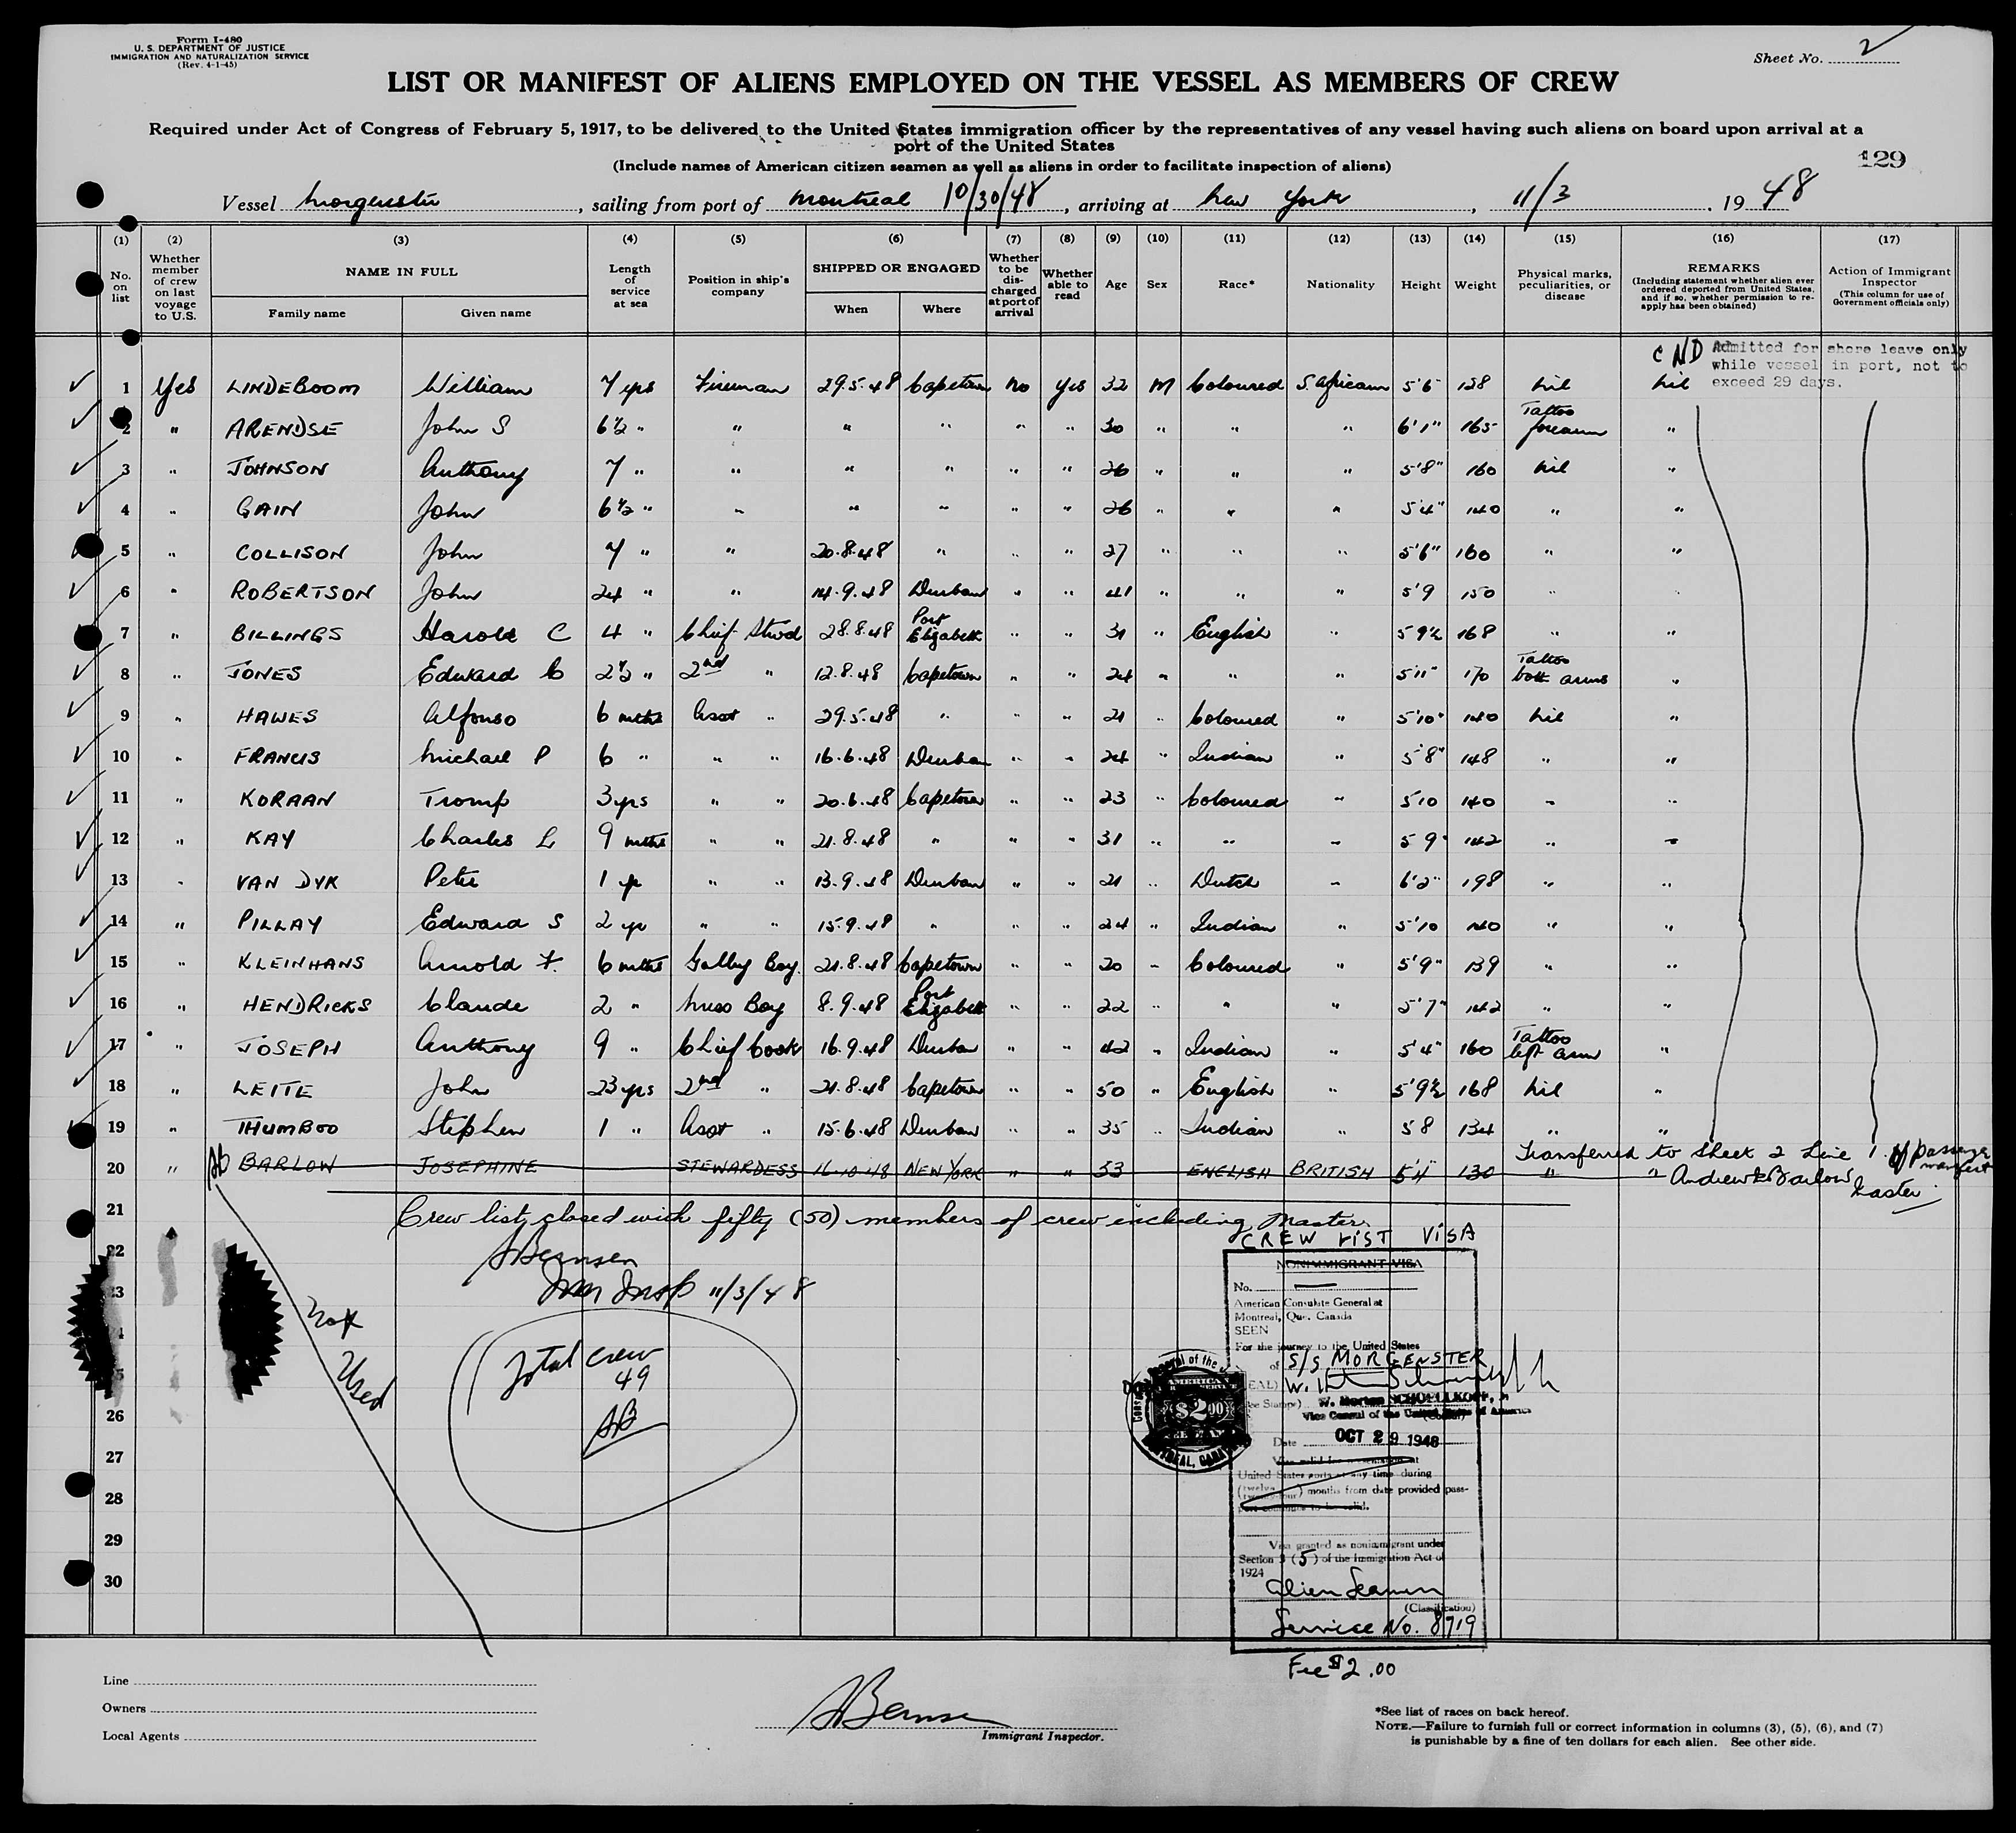 Form I-480
U. S. DEPARTMENT OF JUSTICE
IMMIGRATION AND NATURALIZATION SERVICE
(Rev. 4-1-45)
Sheet No. 2
LIST OR MANIFEST OF ALIENS EMPLOYED ON THE VESSEL AS MEMBERS OF CREW
Required under Act of Congress of February 5, 1917, to be delivered to the United States immigration officer by the representatives of any vessel having such aliens on board upon arrival at a
port of the United States
(Include names of American citizen seamen as well as aliens in order to facilitate inspection of aliens)
129
Vessel Morgenster, sailing from port of Montreal 10/30/48, arriving at New York, 11/3, 1948
(1) (2) (3) (4) (5) (6) (7) (8) (9) (10) (11) (12) (13) (14) (15) (16) (17)
No. on list
Whether member of crew on last voyage to U.S.
NAME IN FULL
Family name Given name
Length of service at sea
Position in ship's company
SHIPPED OR ENGAGED
When Where
Whether to be discharged at port of arrival
Whether able to read
Age Sex Race* Nationality Height Weight
Physical marks, peculiarities, or disease
REMARKS
(Including statement whether alien ever ordered deported from United States, and if so, whether permission to reapply has been obtained)
Action of Immigrant Inspector
(This column for use of Government officials only)
CND Admitted for shore leave only
while vessel in port, not to
exceed 29 days.
1 Yes LINDEBOOM William 7 yrs Fireman 29.5.48 Capetown No Yes 32 M Coloured S. African 5'6 128 Nil Nil
2 " ARENDSE John S 6½ " " " " " " 30 " " " 6'1" 165 Tattoo forearm "
3 " JOHNSON Anthony 7 " " " " " " 26 " " " 5'8" 160 Nil "
4 " GAIN John 6½ " " " " " " 26 " " " 5'4" 140 " "
5 " COLLISON John 7 " " 20.8.48 " " " 27 " " " 5'6" 160 " "
6 " ROBERTSON John 24 " " 14.9.48 Durban " " 41 " " " 5'9 150 " "
7 " BILLINGS Harold C 4 " Chief Stwd 28.8.48 Port Elizabeth " " 31 " English " 5 9½ 168 " "
8 " JONES Edward C 2½ " 2nd " 12.8.48 Capetown " " 24 " " " 5'11" 170 Tattoo both arms "
9 " HAWES Alfonso 6 mths Asst " 29.5.48 " " " 21 " Coloured " 5'10" 140 Nil "
10 " FRANCIS Michael P 6 " " " 16.6.48 Durban " " 24 " Indian " 5'8" 148 " "
11 " KORAAN Tromp 3 yrs " " 20.6.48 Capetown " " 23 " Coloured " 5 10 140 " "
12 " KAY Charles L 9 mths " " 21.8.48 " " " 31 " " " 5 9" 142 " "
13 " VAN DYK Peter 1 yr " " 13.9.48 Durban " " 21 " Dutch " 6'2" 198 " "
14 " PILLAY Edward S 2 yr " " 15.9.48 " " " 24 " Indian " 5'10 140 " "
15 " KLEINHANS Arnold F. 6 mths Galley Boy 21.8.48 Capetown " " 20 " Coloured " 5'9" 139 " "
16 " HENDRICKS Claude 2 " Mess Boy 8.9.48 Port Elizabeth " " 22 " " " 5'7" 142 " "
17 " JOSEPH Anthony 9 " Chief Cook 16.9.48 Durban " " 42 " Indian " 5'4" 160 Tattoo left arm "
18 " LEITE John 23 yrs 2nd " 21.8.48 Capetown " " 50 " English " 5'9½ 168 Nil "
19 " THUMBOO Stephen 1 " Asst " 15.6.48 Durban " " 35 " Indian " 5 8 134 " "
20 " BARLOW JOSEPHINE STEWARDESS 16.10.48 NEW YORK " " 53 ENGLISH BRITISH 5'4" 130 " "
Transferred to Sheet 2 Line 1 of passenger manifest
Andrew Barlow
Master
21 Crew list closed with fifty (50) members of crew including Master
22
Imm Insp 11/3/48
26
27
28
29
30
Not Used
Total crew
49
CREW LIST VISA
NONIMMIGRANT VISA
No.
American Consulate General at
Montreal, Que. Canada
SEEN
For the journey to the United States
of S/S MORGENSTER
W. Morton SCHOELLKOPF, Jr
Vice Consul of the United States of America
$2.00
Date OCT 29 1948
Visa valid for presentation at
United States ports at any time during
(twelve / twenty-four) months from date provided pass-
port continues to be valid.
Visa granted as nonimmigrant under
Section 3 (5) of the Immigration Act of
1924
Alien Seamen
(Classification)
Service No. 8719
Fee $2.00
Line
Owners
Local Agents
Immigrant Inspector.
*See list of races on back hereof.
NOTE.—Failure to furnish full or correct information in columns (3), (5), (6), and (7)
is punishable by a fine of ten dollars for each alien. See other side.